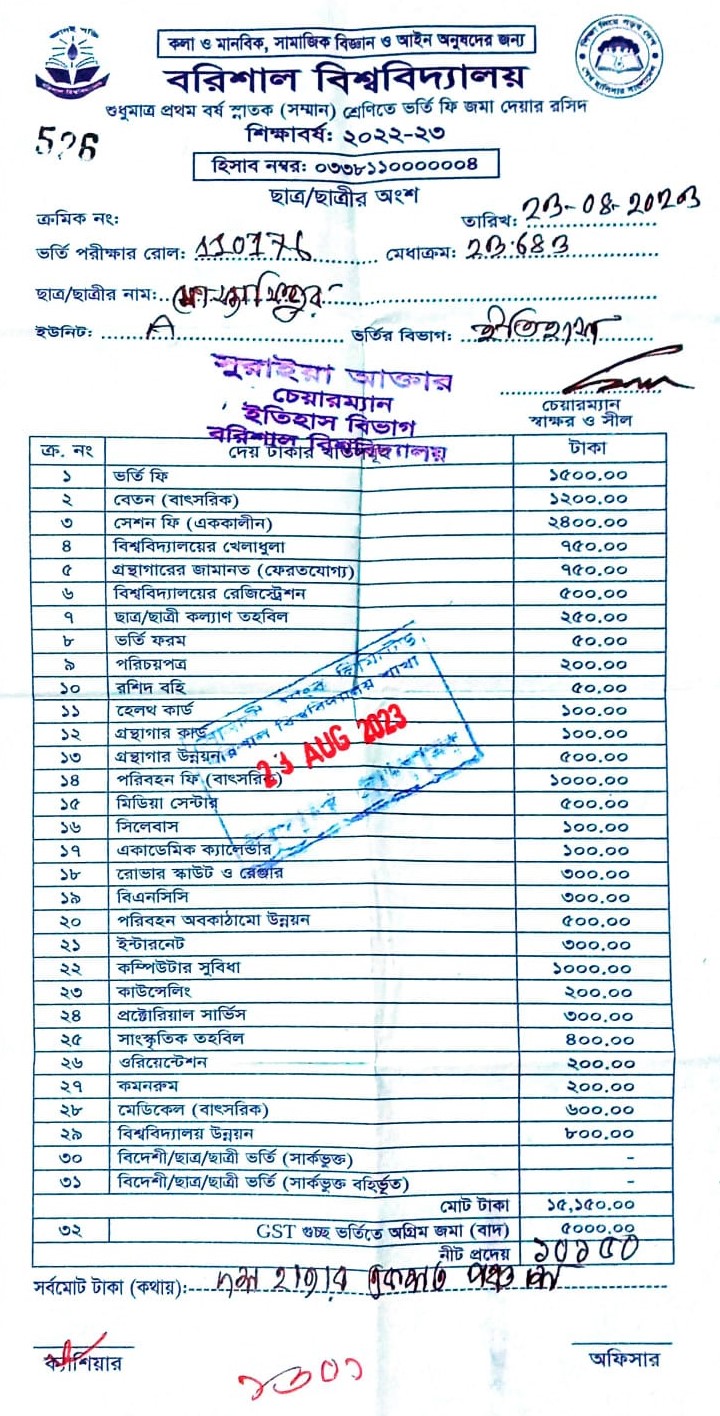 কলা ও মানবিক, সামাজিক বিজ্ঞান ও আইন অনুষদের জন্য
বরিশাল বিশ্ববিদ্যালয়
শুধুমাত্র প্রথম বর্ষ স্নাতক (সম্মান) শ্রেণিতে ভর্তি ফি জমা দেয়ার রসিদ
526
শিক্ষাবর্ষ: ২০২২-২৩
হিসাব নম্বর: ০৩৩৮১১০০০০০০৪
ছাত্র/ছাত্রীর অংশ
ক্রমিক নং: তারিখ: ২৩-০৪-২০২৩
ভর্তি পরীক্ষার রোল: 110176 মেধাক্রম: ২৩৬৪৩
ছাত্র/ছাত্রীর নাম:
ইউনিট: A ভর্তির বিভাগ: ইতিহাস
সুরাইয়া আক্তার
চেয়ারম্যান
ইতিহাস বিভাগ
বরিশাল বিশ্ববিদ্যালয়
চেয়ারম্যান
স্বাক্ষর ও সীল
ক্র. নং দেয় টাকার টাকা
১ ভর্তি ফি ১৫০০.০০
২ বেতন (বাৎসরিক) ১২০০.০০
৩ সেশন ফি (এককালীন) ২৪০০.০০
৪ বিশ্ববিদ্যালয়ের খেলাধুলা ৭৫০.০০
৫ গ্রন্থাগারের জামানত (ফেরতযোগ্য) ৭৫০.০০
৬ বিশ্ববিদ্যালয়ের রেজিস্ট্রেশন ৫০০.০০
৭ ছাত্র/ছাত্রী কল্যাণ তহবিল ২৫০.০০
৮ ভর্তি ফরম ৫০.০০
৯ পরিচয়পত্র ২০০.০০
১০ রশিদ বহি ৫০.০০
১১ হেলথ কার্ড ১০০.০০
১২ গ্রন্থাগার কার্ড ১০০.০০
১৩ গ্রন্থাগার উন্নয়ন ৫০০.০০
১৪ পরিবহন ফি (বাৎসরিক) ১০০০.০০
১৫ মিডিয়া সেন্টার ৫০০.০০
১৬ সিলেবাস ১০০.০০
১৭ একাডেমিক ক্যালেন্ডার ১০০.০০
১৮ রোভার স্কাউট ও রেঞ্জার ৩০০.০০
১৯ বিএনসিসি ৩০০.০০
২০ পরিবহন অবকাঠামো উন্নয়ন ৫০০.০০
২১ ইন্টারনেট ৩০০.০০
২২ কম্পিউটার সুবিধা ১০০০.০০
২৩ কাউন্সেলিং ২০০.০০
২৪ প্রক্টোরিয়াল সার্ভিস ৩০০.০০
২৫ সাংস্কৃতিক তহবিল ৪০০.০০
২৬ ওরিয়েন্টেশন ২০০.০০
২৭ কমনরুম ২০০.০০
২৮ মেডিকেল (বাৎসরিক) ৬০০.০০
২৯ বিশ্ববিদ্যালয় উন্নয়ন ৮০০.০০
৩০ বিদেশী/ছাত্র/ছাত্রী ভর্তি (সার্কভুক্ত) -
৩১ বিদেশী/ছাত্র/ছাত্রী ভর্তি (সার্কভুক্ত বহির্ভূত) -
মোট টাকা ১৫,১৫০.০০
৩২ GST গুচ্ছ ভর্তিতে অগ্রিম জমা (বাদ) ৫০০০.০০
নীট প্রদেয় ১০১৫০
23 AUG 2023
সর্বমোট টাকা (কথায়): দশ হাজার একশত পঞ্চাশ
ক্যাশিয়ার অফিসার
১৩০১